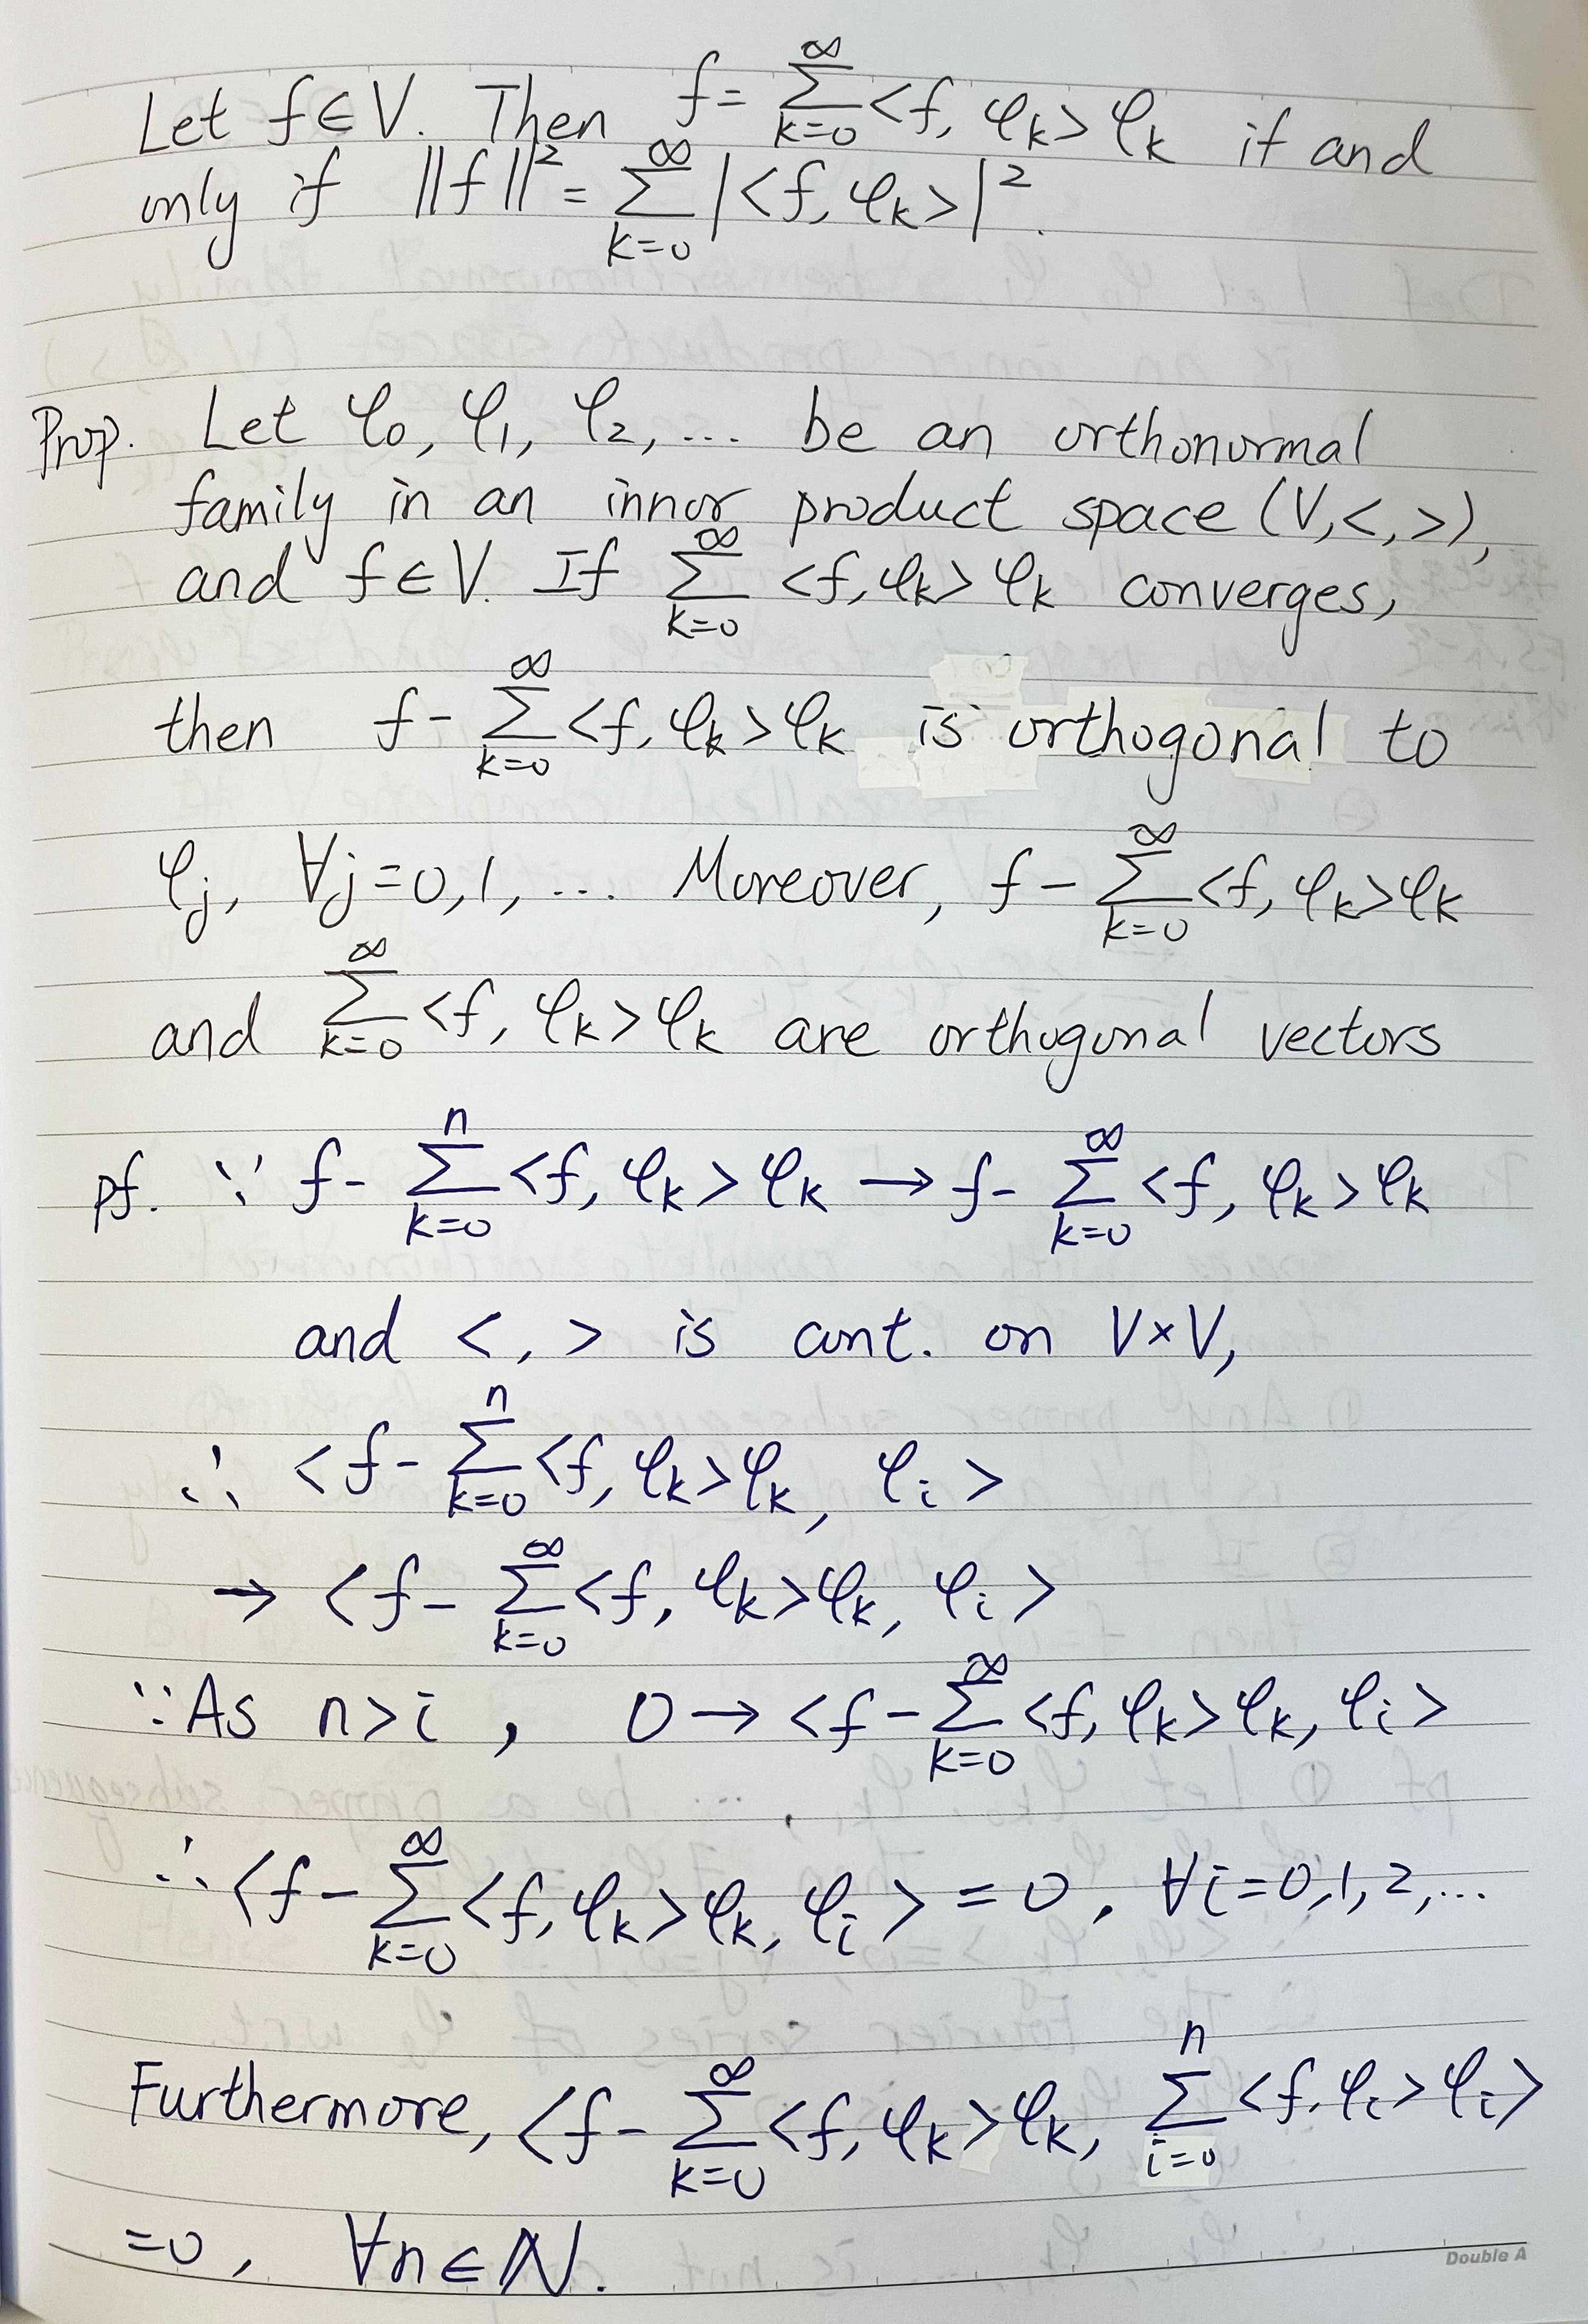 Let f∈V. Then f= ∞∑k=0 <f, φk> φk if and
only if ||f||² = ∞∑k=0 |<f, φk>|².
Prop. Let φ0, φ1, φ2, ... be an orthonormal
family in an innor product space (V,<,>),
and f∈V. If ∞∑k=0 <f,φk> φk converges,
then f- ∞∑k=0 <f, φk>φk is orthogonal to
φj, ∀j=0,1, ... Moreover, f- ∞∑k=0 <f, φk>φk
and ∞∑k=0 <f, φk>φk are orthogonal vectors
pf. ∵ f- n∑k=0 <f, φk> φk → f- ∞∑k=0 <f, φk> φk
and <, > is cont. on V×V,
∴ <f- n∑k=0 <f, φk>φk, φi>
→ <f- ∞∑k=0 <f, φk>φk, φi>
∵As n>i, 0→ <f- ∞∑k=0 <f, φk>φk, φi>
∴ <f- ∞∑k=0 <f, φk>φk, φi> =0, ∀i=0,1,2,...
Furthermore, <f- ∞∑k=0 <f, φk>φk, n∑i=0 <f, φi>φi>
=0, ∀n∈ℕ.
Double A